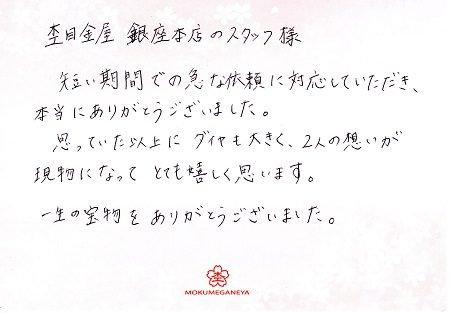 杢目金屋 銀座本店のスタッフ様
短い期間での急な依頼に対応していただき、
本当にありがとうございました。
思っていた以上に ダイヤも大きく、2人の想いが
現物になって とても嬉しく思います。
一生の宝物を ありがとうございました。
MOKUMEGANEYA